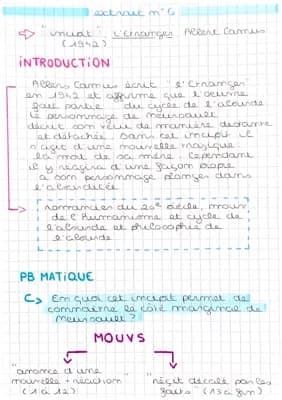 extrait n°6
"incipit", L'Etranger, Albert Camus
(1942)
INTRODUCTION
Albert Camus écrit "l'Etranger"
en 1942 et affirme que l'oeuvre
fait partie du cycle de l'absurde
le personnage de meursault
décrit son vécu de manière distante
et détachée. Dans cet incipit il
s'agit d'une nouvelle tragique :
la mort de sa mère. Cependant
il y réagira d'une façon propre
à son personnage plongé dans
l'absurdité
romancier du 20e siècle, mouv
de l'humanisme et cycle de
l'absurde et philosophie de
l'absurde
PB MATIQUE
En quoi cet incipit permet de
connaître le côté marginal de
meursault ?
MOUVS
"annonce d'une
nouvelle + réaction"
(1 à 12)
"récit décalé par les
faits" (13 à fin)